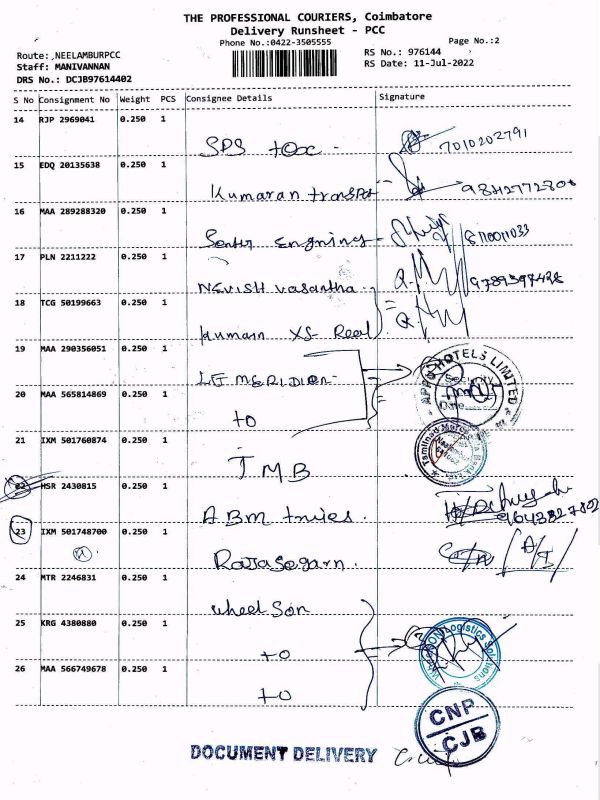 THE PROFESSIONAL COURIERS, Coimbatore
Delivery Runsheet - PCC
Phone No.:0422-3505555
Page No.:2
Route: NEELAMBURPCC
RS No.: 976144
Staff: MANIVANNAN
RS Date: 11-Jul-2022
DRS No.: DCJB97614402
S No Consignment No Weight PCS Consignee Details Signature
14 RJP 2969041 0.250 1
SPS tex - 7010202791
15 EDQ 20135638 0.250 1
Kumaran transpt -
16 MAA 289288320 0.250 1
Senter Engning - 8110011033
17 PLN 2211222 0.250 1
NEVISH vasantha. 9789597428
18 TCG 50199663 0.250 1
Kumarn XS Real
19 MAA 290356051 0.250 1
LE MERIDION -
APPU HOTELS LIMITED
Security
Date
20 MAA 565814869 0.250 1
to
21 IXM 501760874 0.250 1
TMB
Tamilnad Mercantile Bank Ltd
22 HSR 2430815 0.250 1
ABM tnies. 9643827802
23 IXM 501748700 0.250 1
Rajasegarn.
24 MTR 2246831 0.250 1
wheelson
25 KRG 4380880 0.250 1
to
Logistics Solutions
26 MAA 566749678 0.250 1
to
CNP
CJB
DOCUMENT DELIVERY